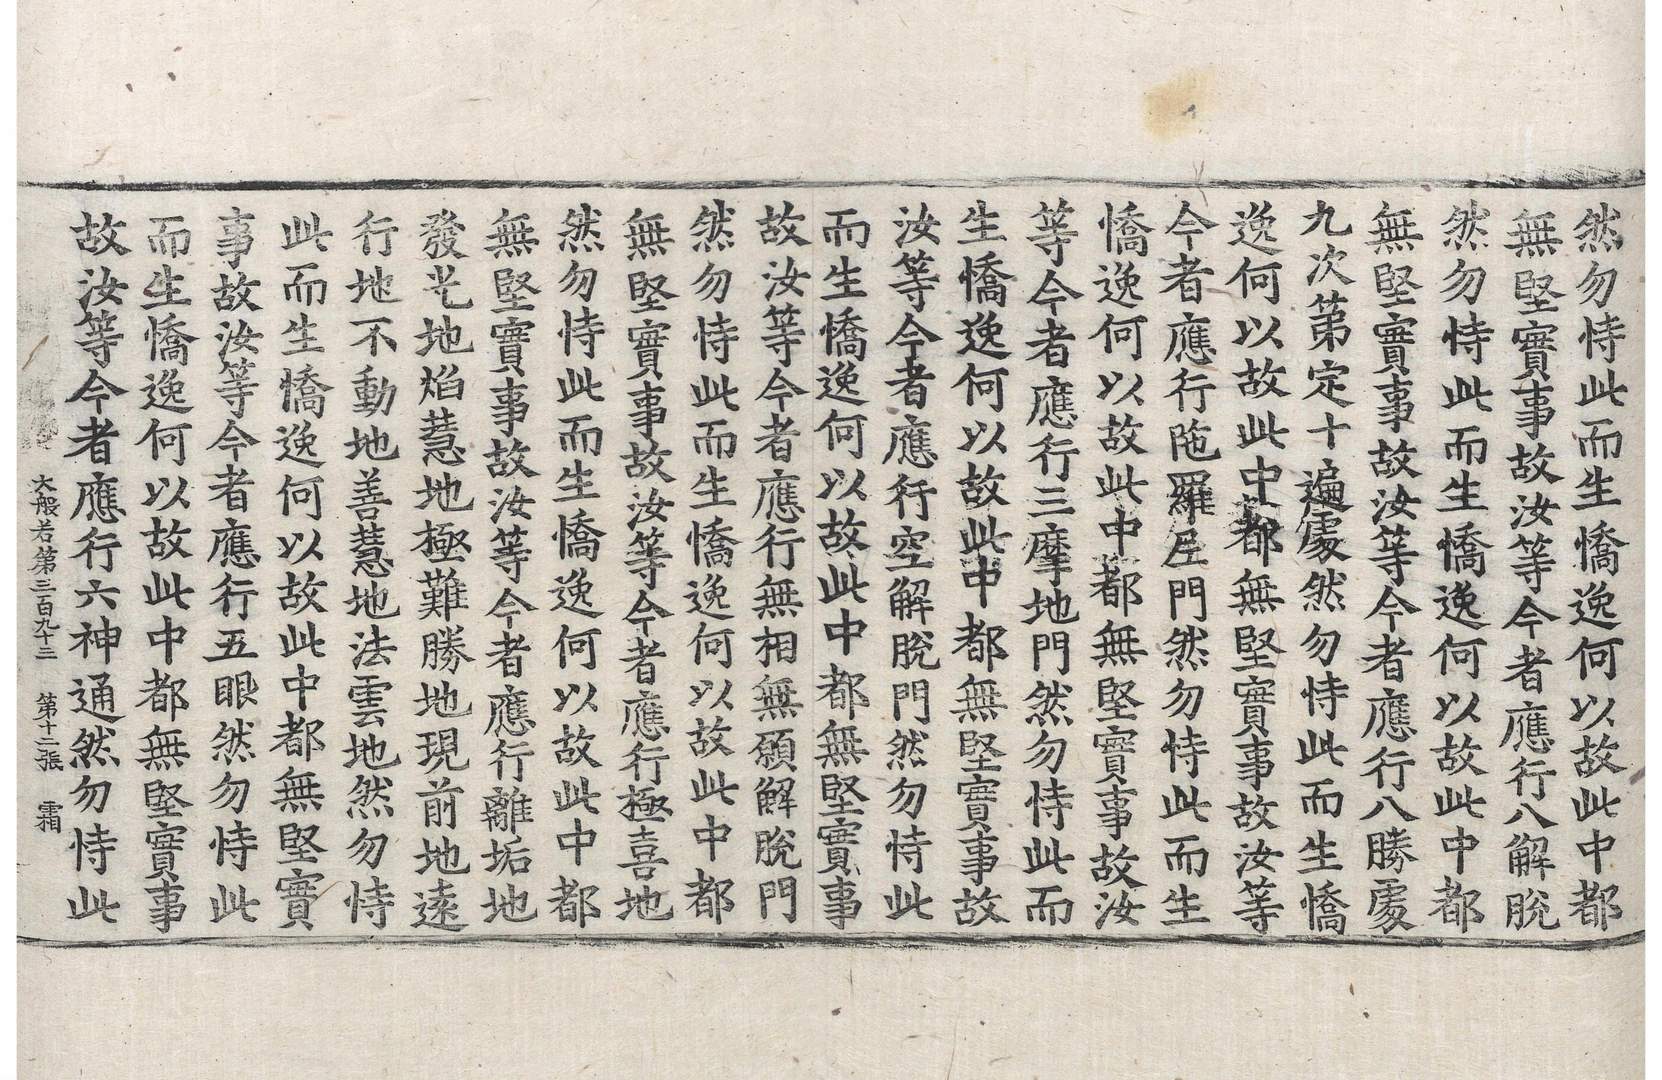 然勿恃此而生憍逸何以故此中都
無堅實事故汝等今者應行八解脫
然勿恃此而生憍逸何以故此中都
無堅實事故汝等今者應行八勝處
九次第定十遍處然勿恃此而生憍
逸何以故此中都無堅實事故汝等
今者應行陁羅尼門然勿恃此而生
憍逸何以故此中都無堅實事故汝
等今者應行三摩地門然勿恃此而
生憍逸何以故此中都無堅實事故
汝等今者應行空解脫門然勿恃此
而生憍逸何以故此中都無堅實事
故汝等今者應行無相無願解脫門
然勿恃此而生憍逸何以故此中都
無堅實事故汝等今者應行極喜地
然勿恃此而生憍逸何以故此中都
無堅實事故汝等今者應行離垢地
發光地焰慧地極難勝地現前地遠
行地不動地善慧地法雲地然勿恃
此而生憍逸何以故此中都無堅實
事故汝等今者應行五眼然勿恃此
而生憍逸何以故此中都無堅實事
故汝等今者應行六神通然勿恃此
大般若第三百九十三 第十二張 霜